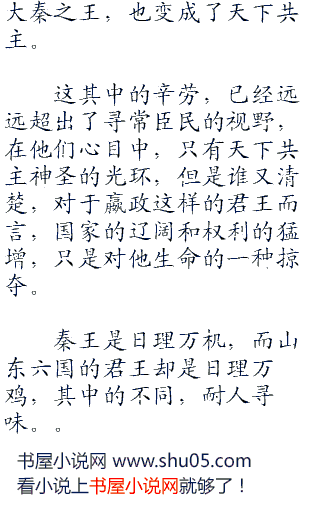 大秦之王，也变成了天下共
主。
这其中的辛劳，已经远
远超出了寻常臣民的视野，
在他们心目中，只有天下共
主神圣的光环，但是谁又清
楚，对于嬴政这样的君王而
言，国家的辽阔和权利的猛
增，只是对他生命的一种掠
夺。
秦王是日理万机，而山
东六国的君王却是日理万
鸡，其中的不同，耐人寻
味。。
书屋小说网 www.shu05.com
看小说上书屋小说网就够了！